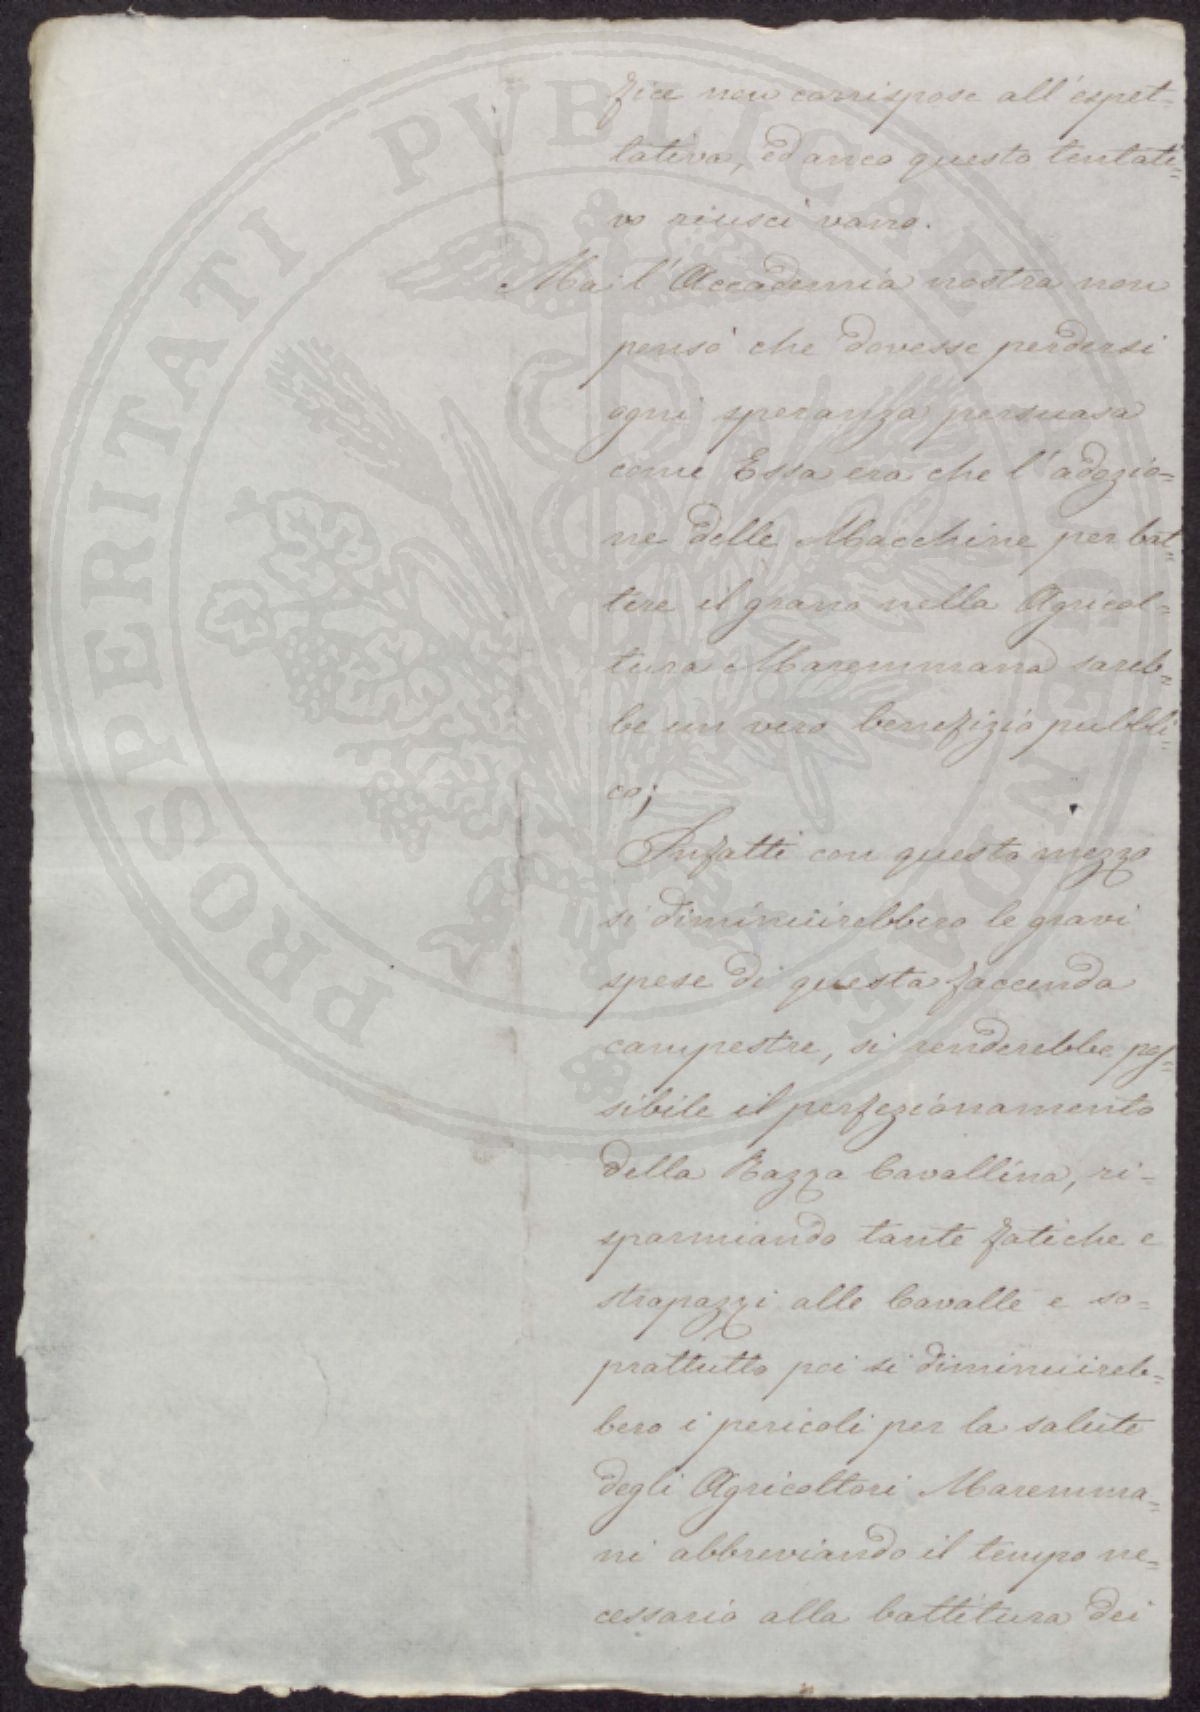 fice non corrispose all'espet-
tativa, ed anco questo tentati=
vo riuscì vano.
Ma l'Accademia nostra non
pensò che dovesse perdersi
ogni speranza persuasa
come Essa era che l'adozio=
ne delle Macchine per bat=
tere il grano nella Agricol=
tura Maremmana sareb=
be un vero benefizio pubbli=
co;
Infatti con questo mezzo
si diminuirebbero le gravi
spese di questa faccenda
campestre, si renderebbe pos=
sibile il perfezionamento
della Razza Cavallina, ri-
sparmiando tante fatiche e
strapazzi alle Cavalle e so=
prattutto poi si diminuireb=
bero i pericoli per la salute
degli Agricoltori Maremma=
ni abbreviando il tempo ne=
cessario alla battitura dei
PROSPERITATI PVBLICAE AVGENDAE